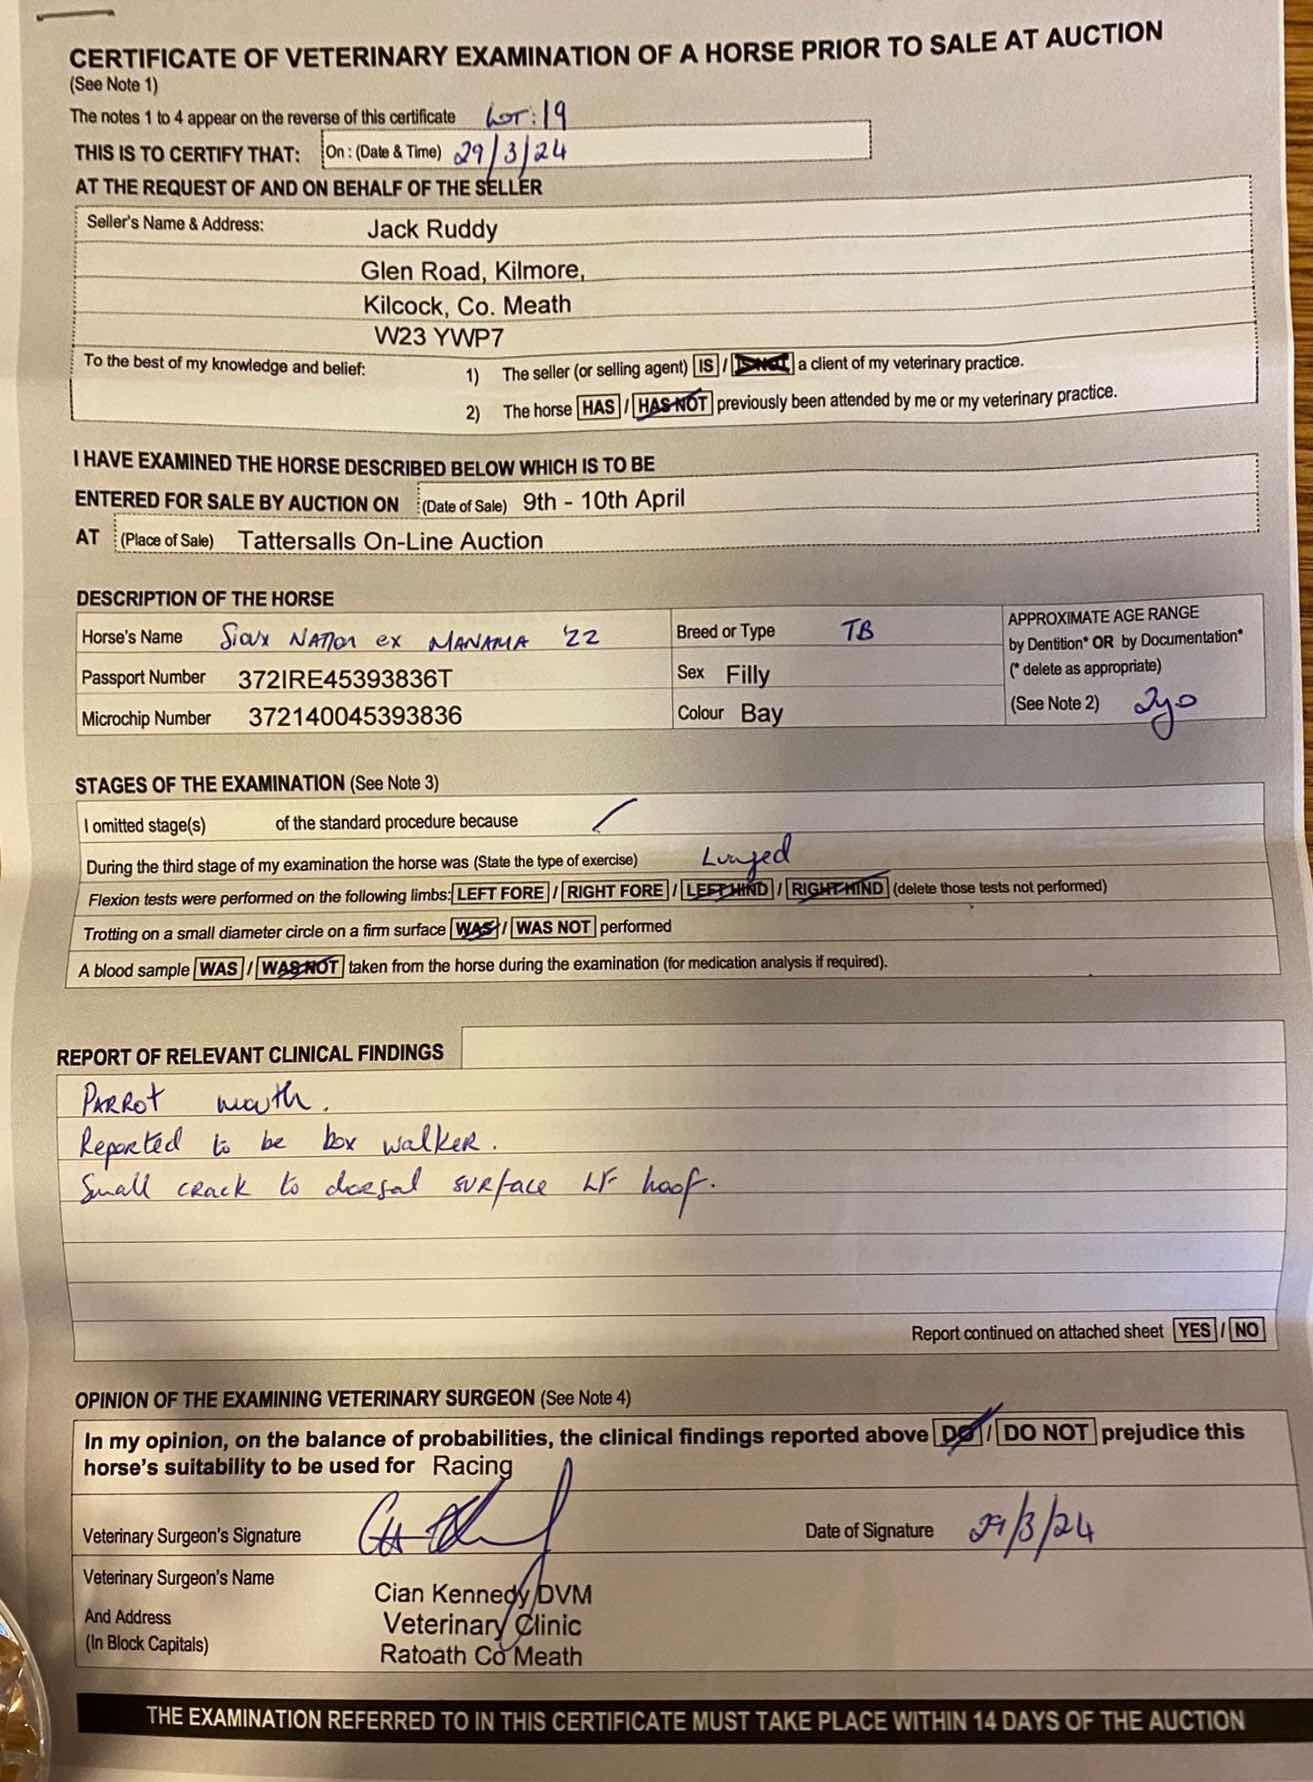 CERTIFICATE OF VETERINARY EXAMINATION OF A HORSE PRIOR TO SALE AT AUCTION
(See Note 1)
The notes 1 to 4 appear on the reverse of this certificate Lot: 19
THIS IS TO CERTIFY THAT: On : (Date & Time) 29/3/24
AT THE REQUEST OF AND ON BEHALF OF THE SELLER
Seller's Name & Address: Jack Ruddy
Glen Road, Kilmore,
Kilcock, Co. Meath
W23 YWP7
To the best of my knowledge and belief: 1) The seller (or selling agent) IS / IS NOT a client of my veterinary practice.
2) The horse HAS / HAS NOT previously been attended by me or my veterinary practice.
I HAVE EXAMINED THE HORSE DESCRIBED BELOW WHICH IS TO BE
ENTERED FOR SALE BY AUCTION ON (Date of Sale) 9th - 10th April
AT (Place of Sale) Tattersalls On-Line Auction
DESCRIPTION OF THE HORSE
Horse's Name Sioux Nation ex MANAMA '22 Breed or Type TB
APPROXIMATE AGE RANGE
by Dentition* OR by Documentation*
(* delete as appropriate)
(See Note 2) 2yo
Passport Number 372IRE45393836T Sex Filly
Microchip Number 372140045393836 Colour Bay
STAGES OF THE EXAMINATION (See Note 3)
I omitted stage(s) of the standard procedure because /
During the third stage of my examination the horse was (State the type of exercise) Lunged
Flexion tests were performed on the following limbs: LEFT FORE / RIGHT FORE / LEFT HIND / RIGHT HIND (delete those tests not performed)
Trotting on a small diameter circle on a firm surface WAS / WAS NOT performed
A blood sample WAS / WAS NOT taken from the horse during the examination (for medication analysis if required).
REPORT OF RELEVANT CLINICAL FINDINGS
PARROT mouth.
Reported to be box walker.
Small crack to dorsal surface LF hoof.
Report continued on attached sheet YES / NO
OPINION OF THE EXAMINING VETERINARY SURGEON (See Note 4)
In my opinion, on the balance of probabilities, the clinical findings reported above DO / DO NOT prejudice this
horse's suitability to be used for Racing
Veterinary Surgeon's Signature Date of Signature 29/3/24
Veterinary Surgeon's Name Cian Kennedy DVM
And Address Veterinary Clinic
(In Block Capitals) Ratoath Co Meath
THE EXAMINATION REFERRED TO IN THIS CERTIFICATE MUST TAKE PLACE WITHIN 14 DAYS OF THE AUCTION